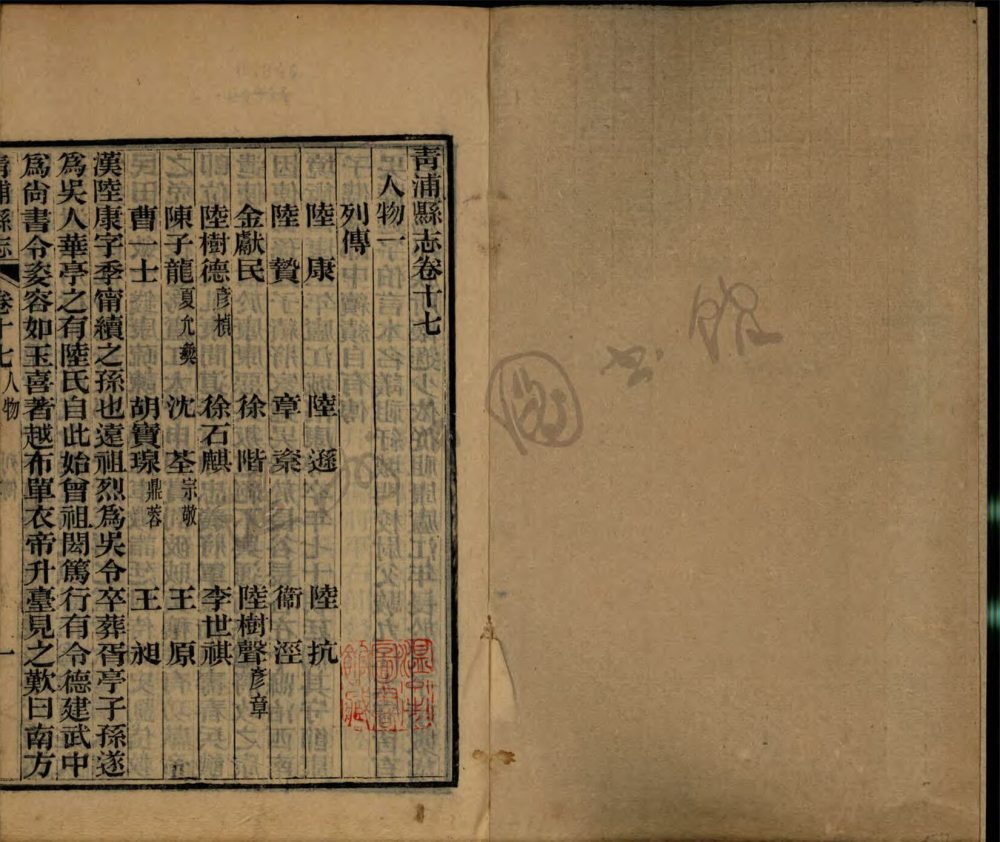 青浦縣志卷十七
人物一
列傳
陸康 陸遜 陸抗
陸贄 章楶 衞涇
金獻民 徐階 陸樹聲彥章
陸樹德彥楨 徐石麒 李世祺
陳子龍夏允彝 沈荃宗敬 王原
曹一士 胡寶瑔鼎蓉 王昶
漢陸康字季甯續之孫也遠祖烈爲吳令卒葬胥亭子孫遂
爲吳人華亭之有陸氏自此始曾祖閎篤行有令德建武中
爲尚書令姿容如玉喜著越布單衣帝升臺見之歎曰南方
青浦縣志 卷十七人物 一